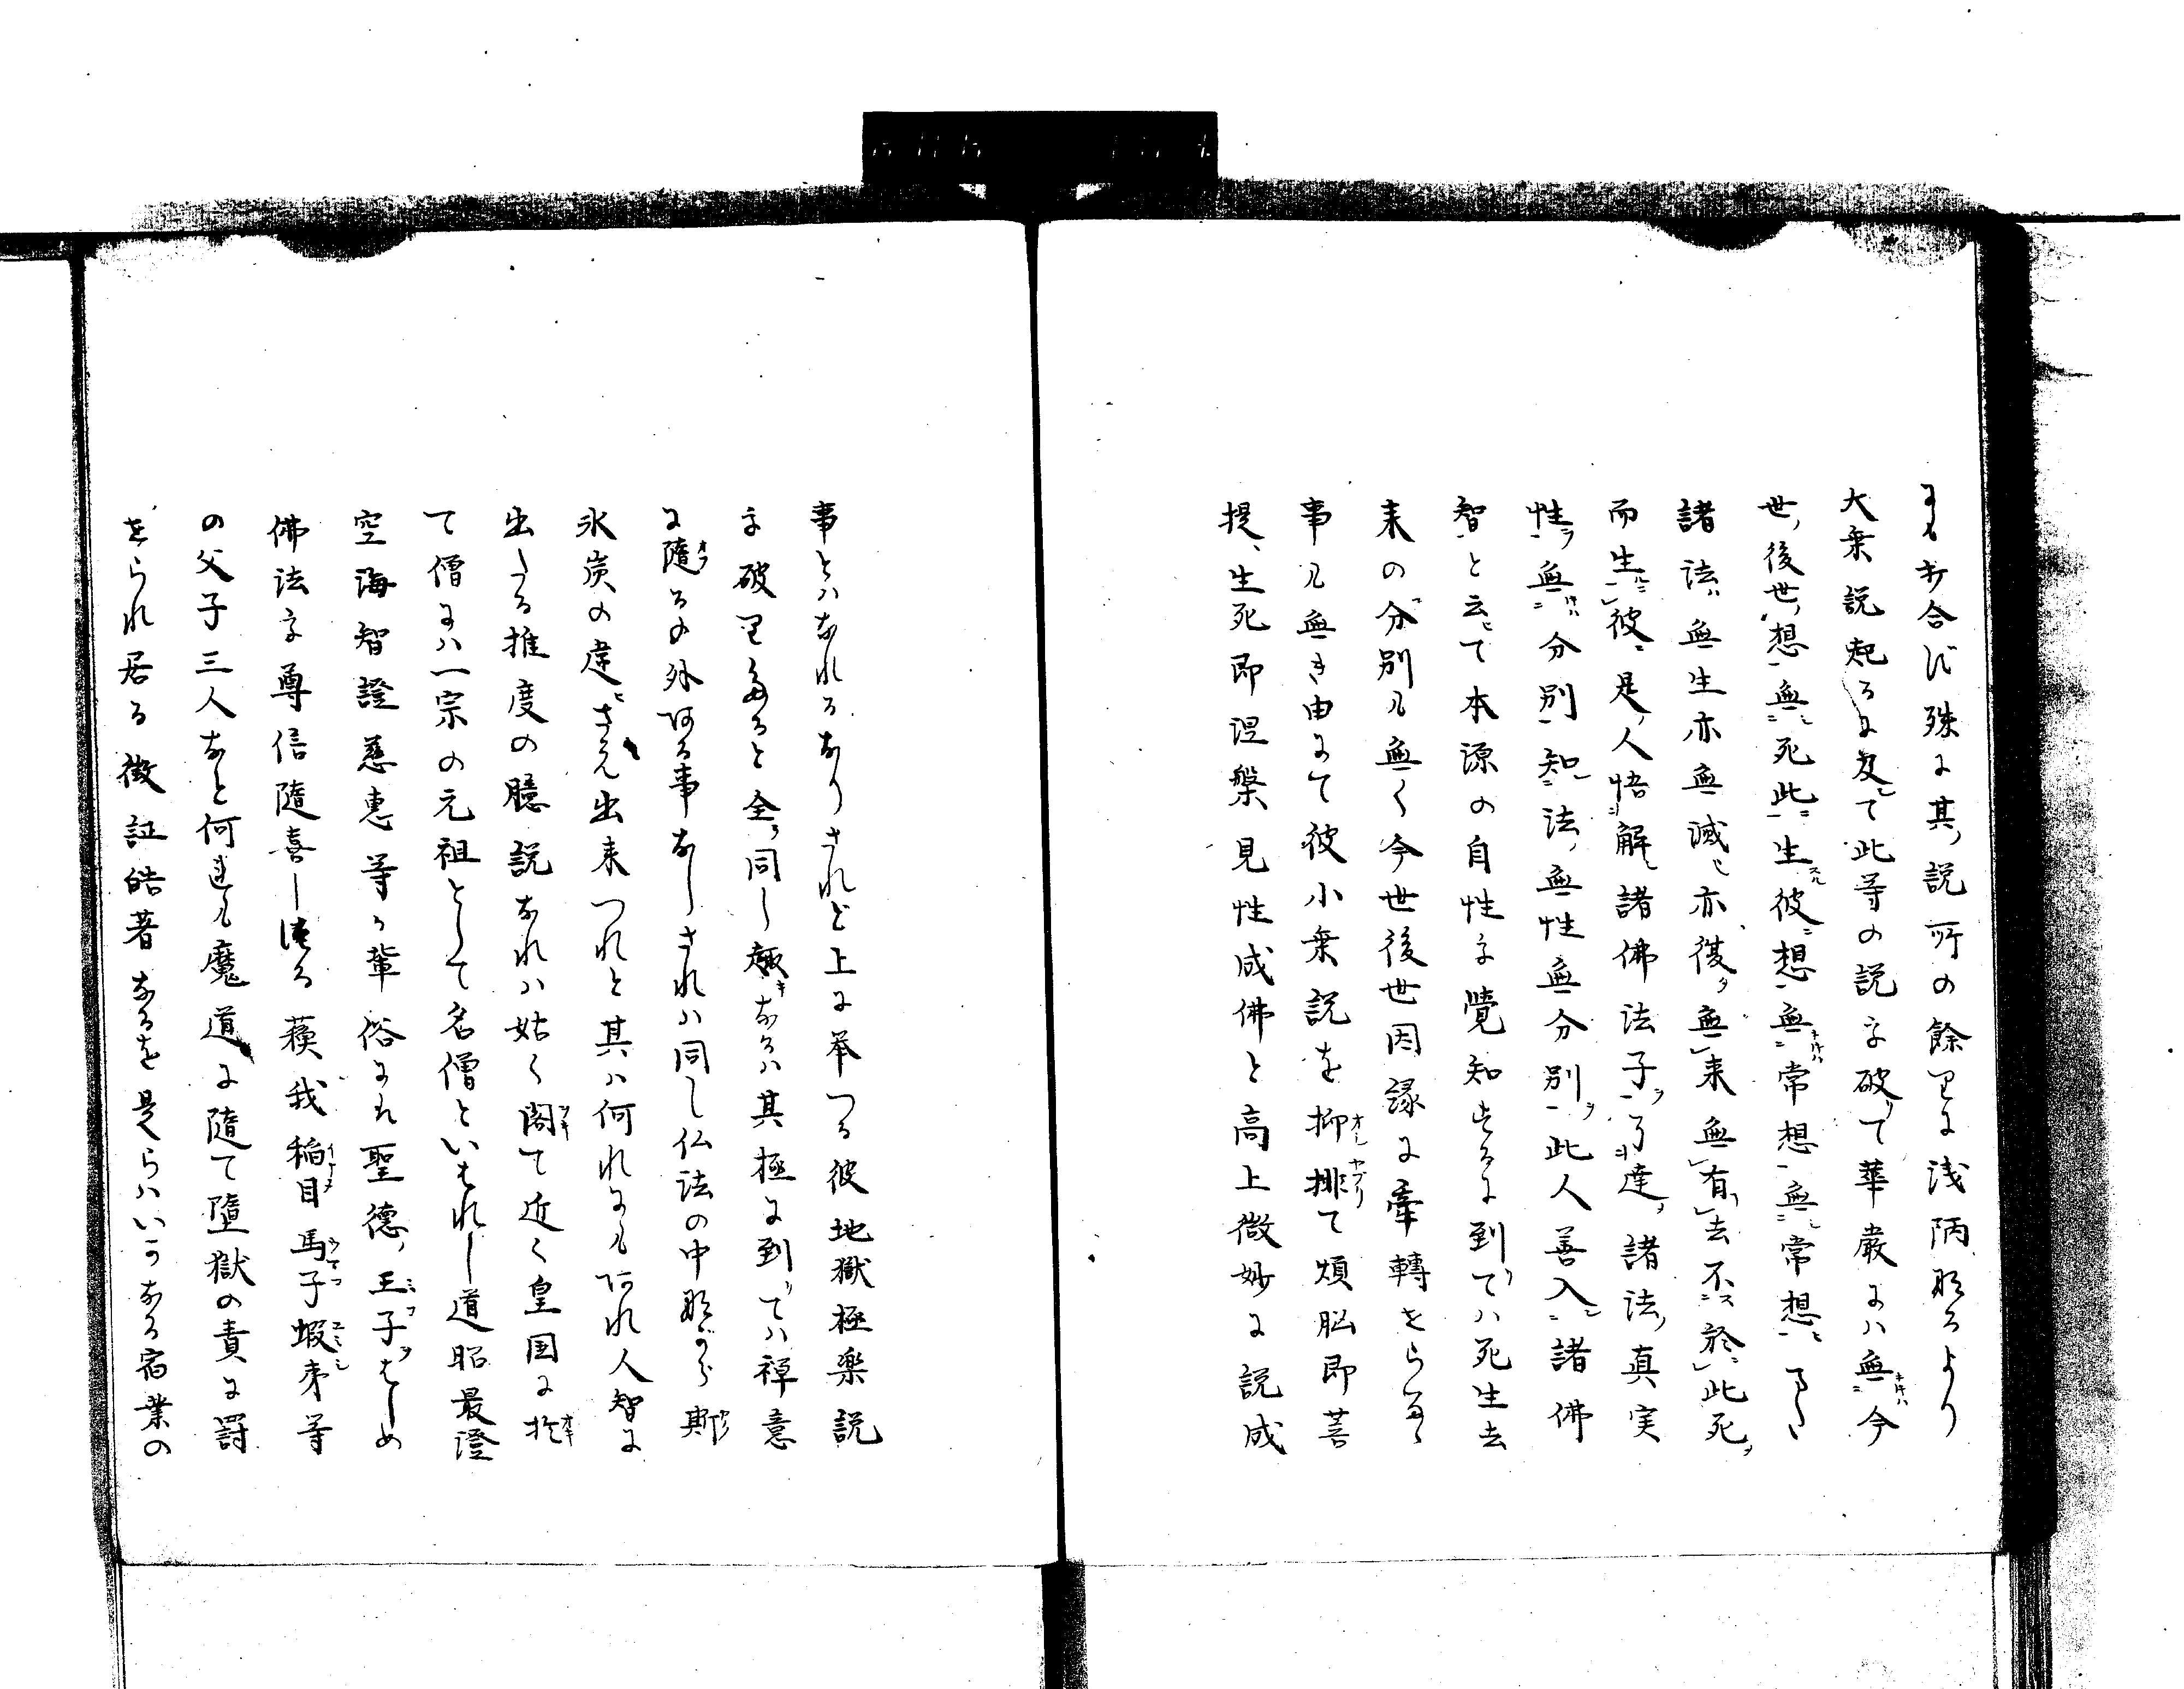 にも打合ず殊に其説所の餘りに浅陋なるより
大乗説起るに及て此等の説を破て華厳には無今
世後世想無死此生彼想無常想無常想
諸法無生亦無滅亦復無来無有去不於此死
而生彼是人悟解諸佛法子了達諸法真実
性無分別知法無性無分別此人善入諸佛
智と云て本源の自性を覺知するに到ては死生去
来の分別も無く今世後世因縁に牽轉せらるゝ
事も無き由にて彼小乗説を抑排て煩脳即菩
提、生死即涅槃見性成佛と高上微妙に説成
事とはなれるなりされど上に挙つる彼地獄極楽説
を破りたると全同し趣なるは其極に到ては禅意
に隨るの外ある事なしされは同し仏法の中ながら斯
氷炭の違さへ出来つれと其は何れにもあれ人智に
出たる推度の臆説なれは姑く閣て近く皇国に於
て僧には一宗の元祖として名僧といはれし道昭最澄
空海智證慈恵等の輩俗にも聖徳王子をはしめ
佛法を尊信隨喜しける蘓我稲目馬子蝦夷等
の父子三人なと何れも魔道に隨て墮獄の責に罸
せられ居る徴証皓著なるを是らはいかなる宿業の